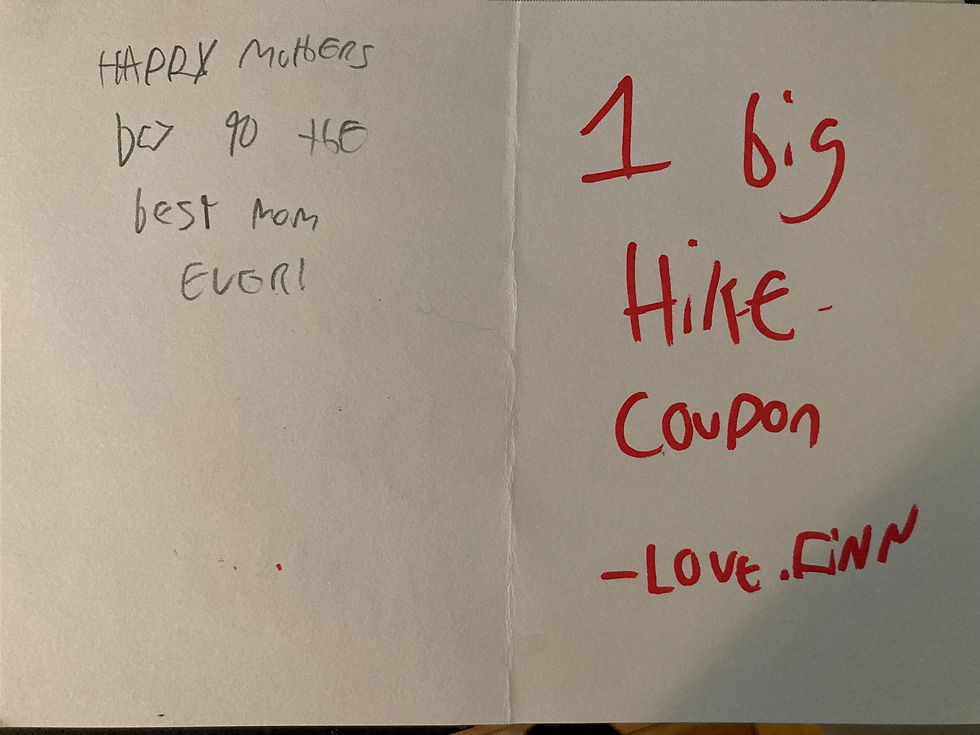 HAPPY MOTHERS
DAY TO THE
best mom
EVER!
1 big
HIKE-
COUPON
-LOVE.FINN